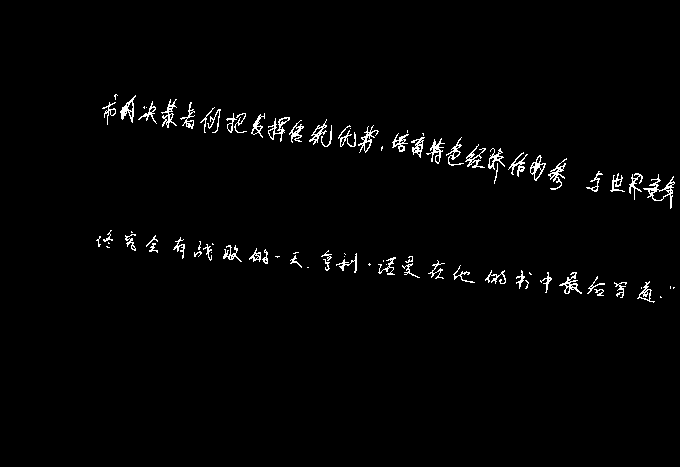 市的决策者们把发挥传统优势,培育特色经济作为参与世界竞争
终究会有战败的一天.亨利·诺曼在他的书中最后写道."